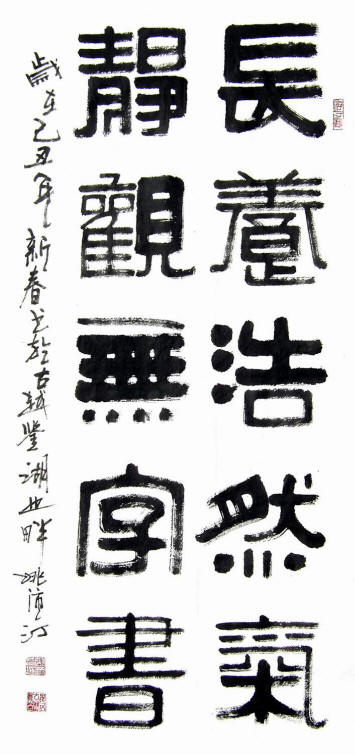 長養浩然氣
靜觀無字書
歲在己丑年新春書於古越鑒湖之畔姚